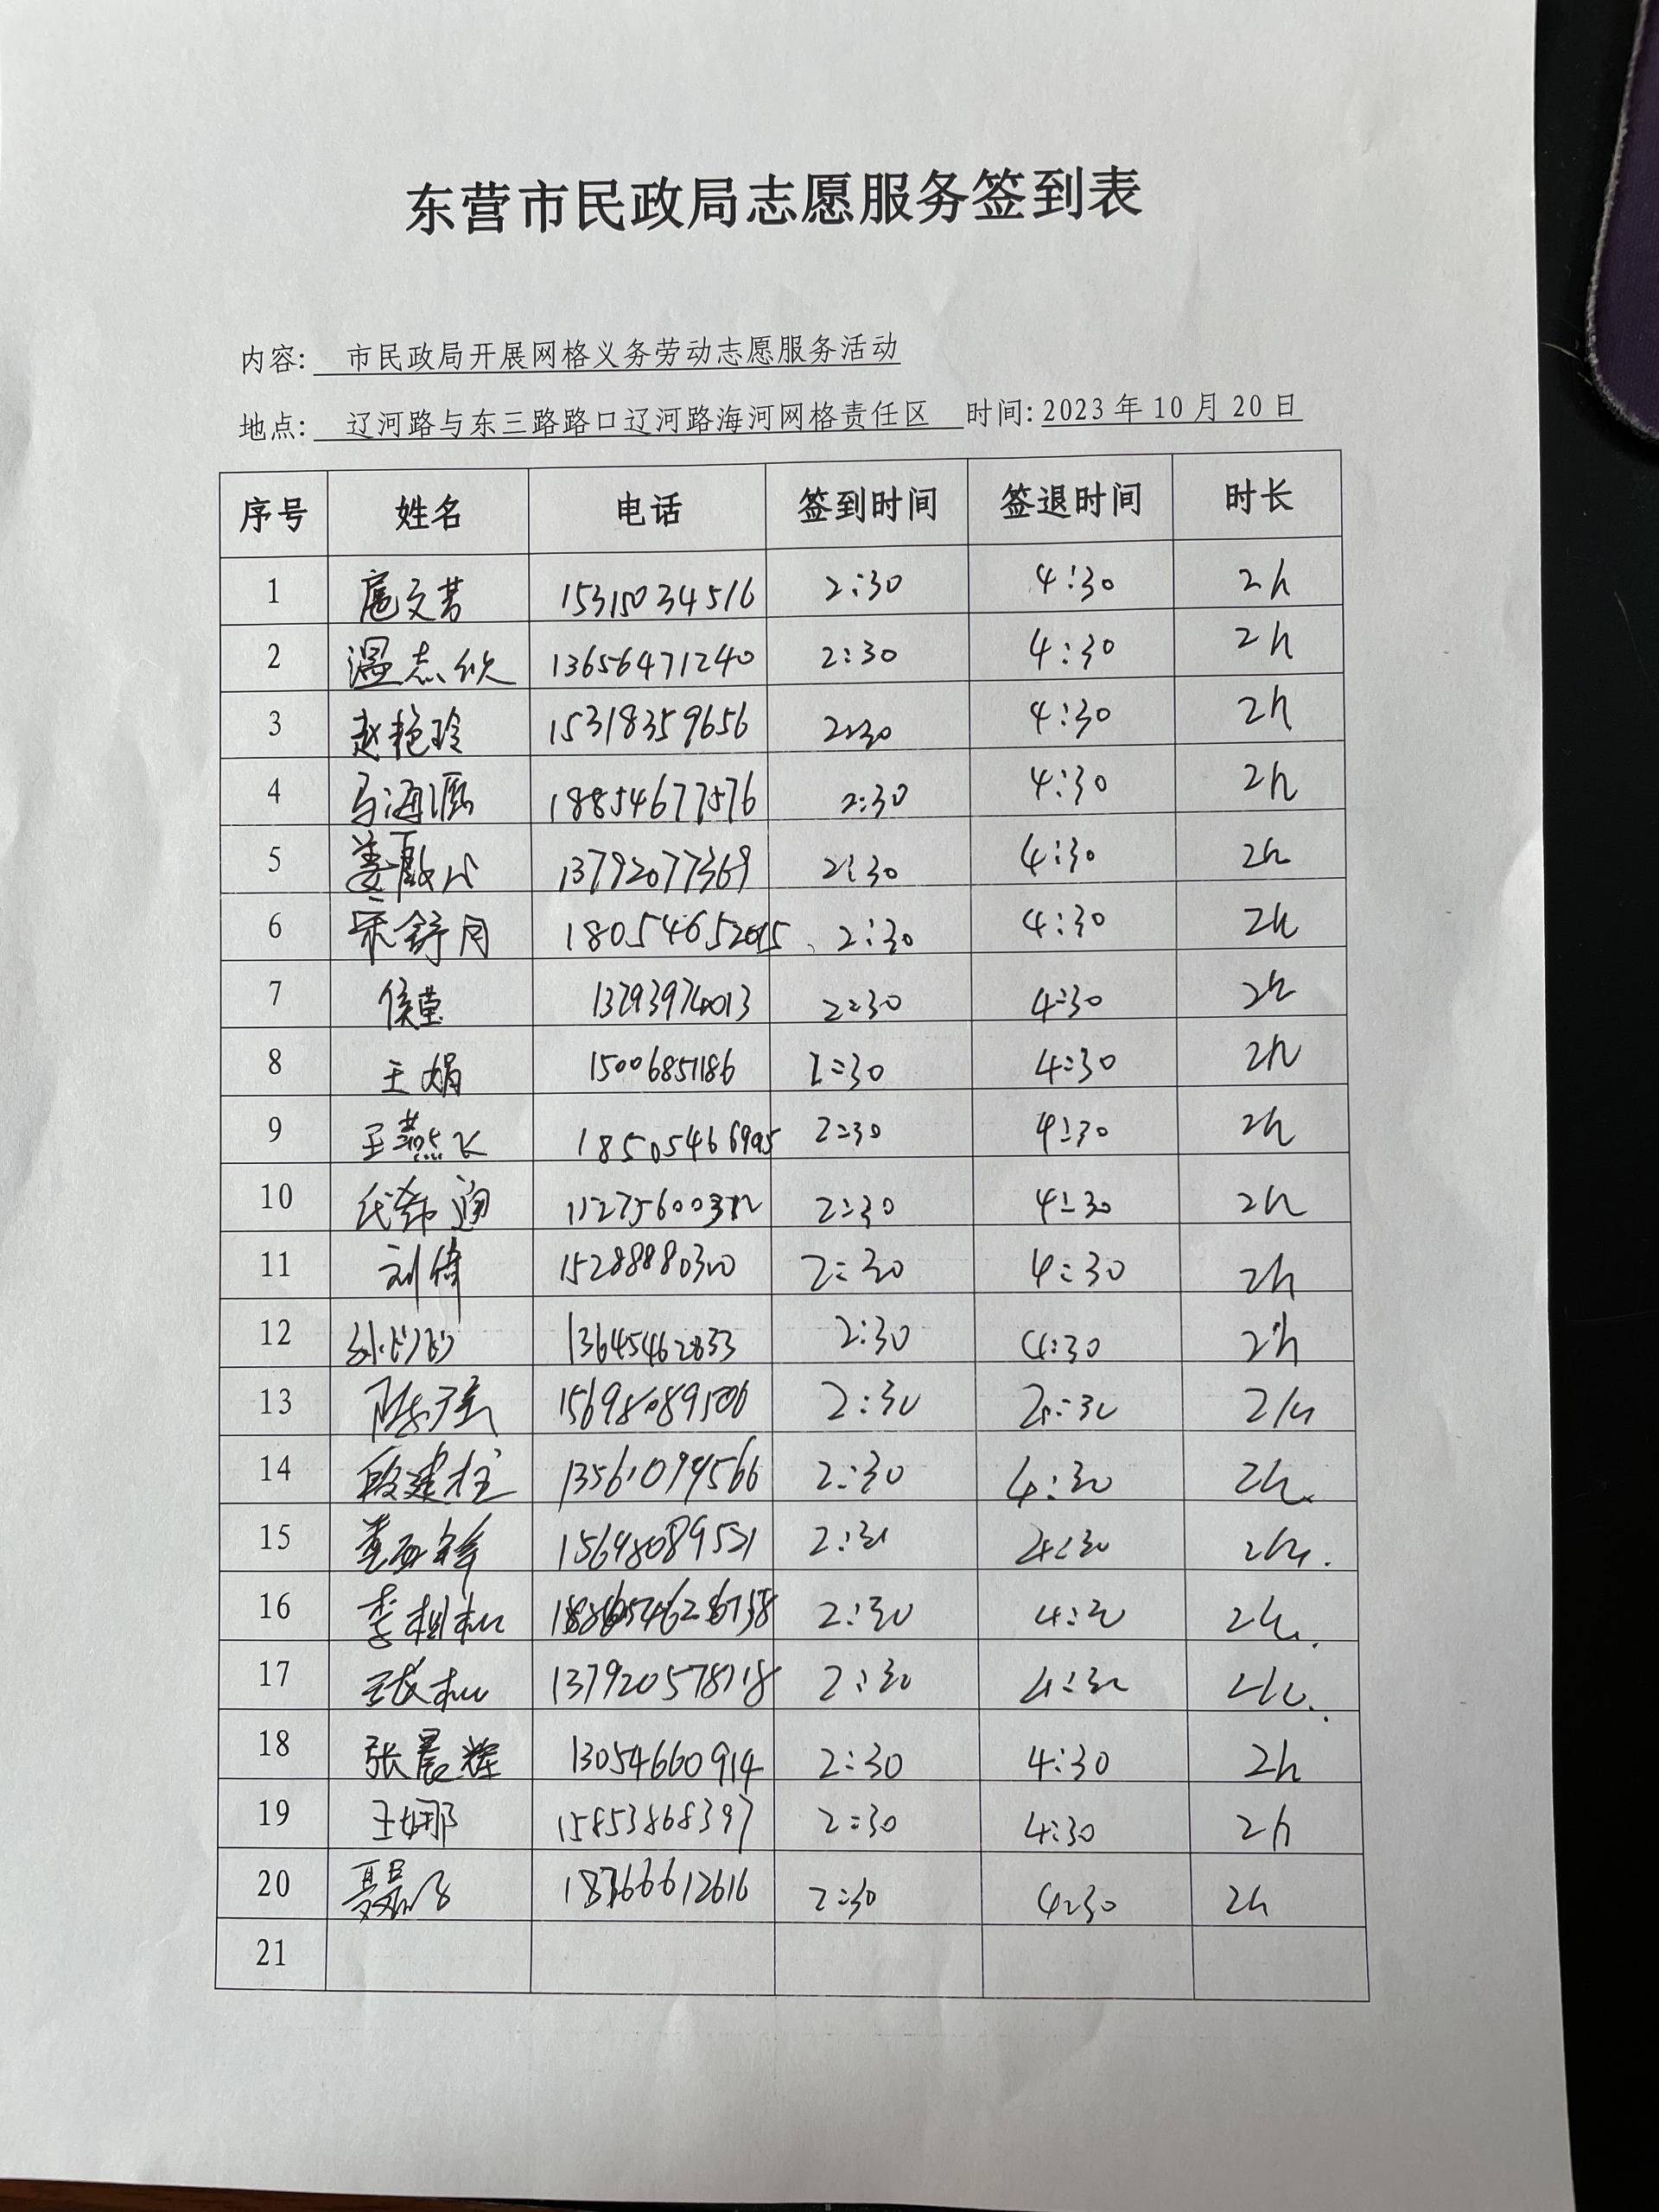 东营市民政局志愿服务签到表
内容: 市民政局开展网格义务劳动志愿服务活动
地点: 辽河路与东三路路口辽河路海河网格责任区 时间: 2023 年 10 月 20 日
序号 姓名 电话 签到时间 签退时间 时长
1 扈文芳 15315034516 2:30 4:30 2h
2 温志欣 13656471240 2:30 4:30 2h
3 赵艳玲 15318359656 2:30 4:30 2h
4 马海 18854677576 2:30 4:30 2h
5 姜 13792077369 2:30 4:30 2h
6 舒月 2:30 4:30 2h
7 侯莹 13793974013 2:30 4:30 2h
8 王娟 15006851186 2:30 4:30 2h
9 王燕飞 18505466995 2:30 4:30 2h
10 2:30 4:30 2h
11 刘倩 15288880300 2:30 4:30 2h
12 孙 13645462833 2:30 4:30 2h
13 陈 15698089506 2:30 4:30 2h
14 段建柱 13561094566 2:30 4:30 2h
15 15698089521 2:30 4:30 2h
16 李 2:30 4:30 2h
17 2:30 4:30 2h
18 张晨辉 13054660914 2:30 4:30 2h
19 王娜 15853868397 2:30 4:30 2h
20 聂 18366612616 2:30 4:30 2h
21